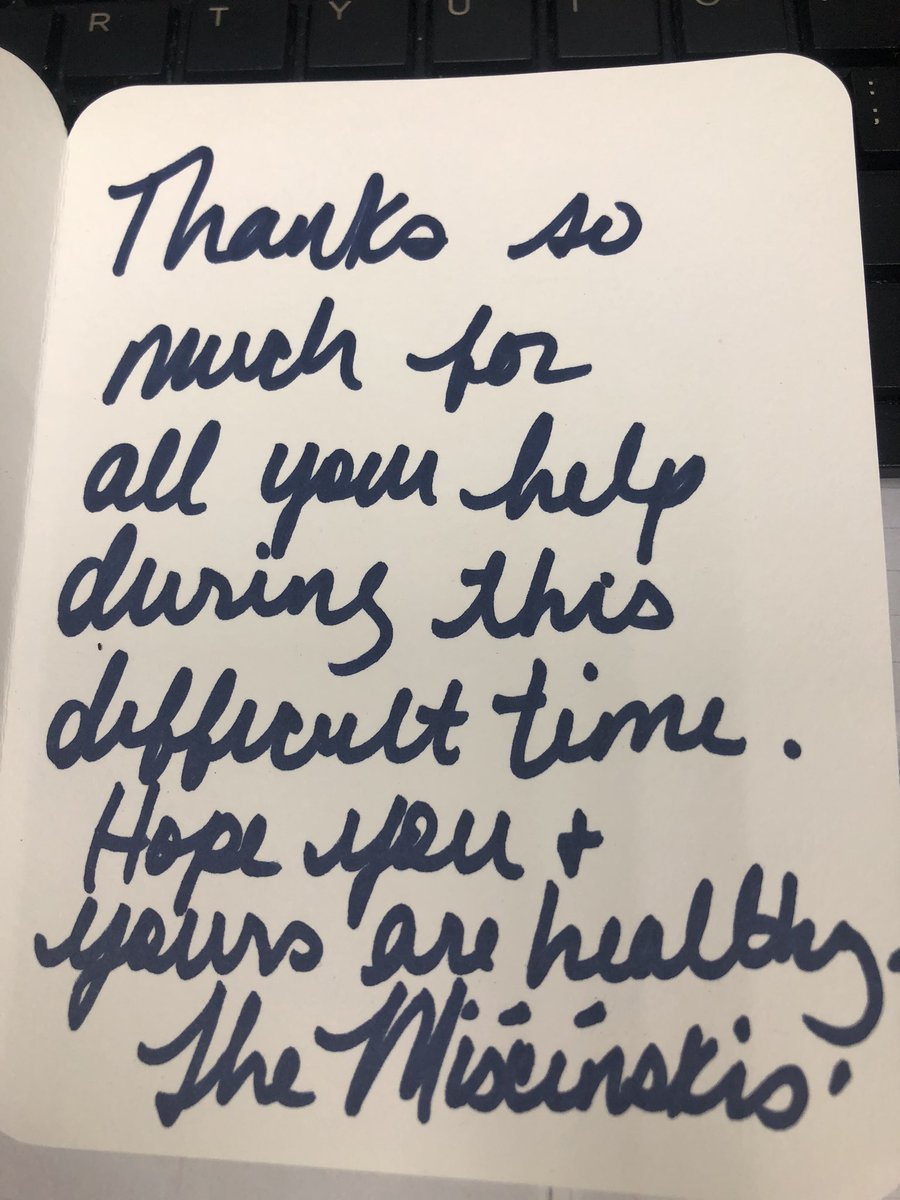 R T Y U I O
;
Thanks so
much for
all your help
during this
difficult time.
Hope you +
yours are healthy.
The Miscinskis'